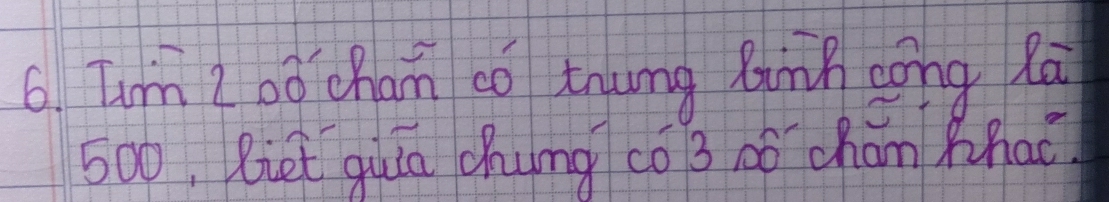 6. Tìm 2 số chẵn có trung bình cộng là
500, biết giữa chúng có 3 số chẵn khác.